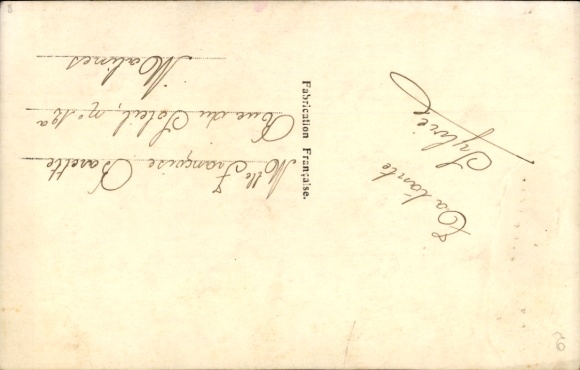 Ta tante
Sylvie
Fabrication Française.
Mlle Françoise Barette
Rue du Soleil, no 12a
Malines